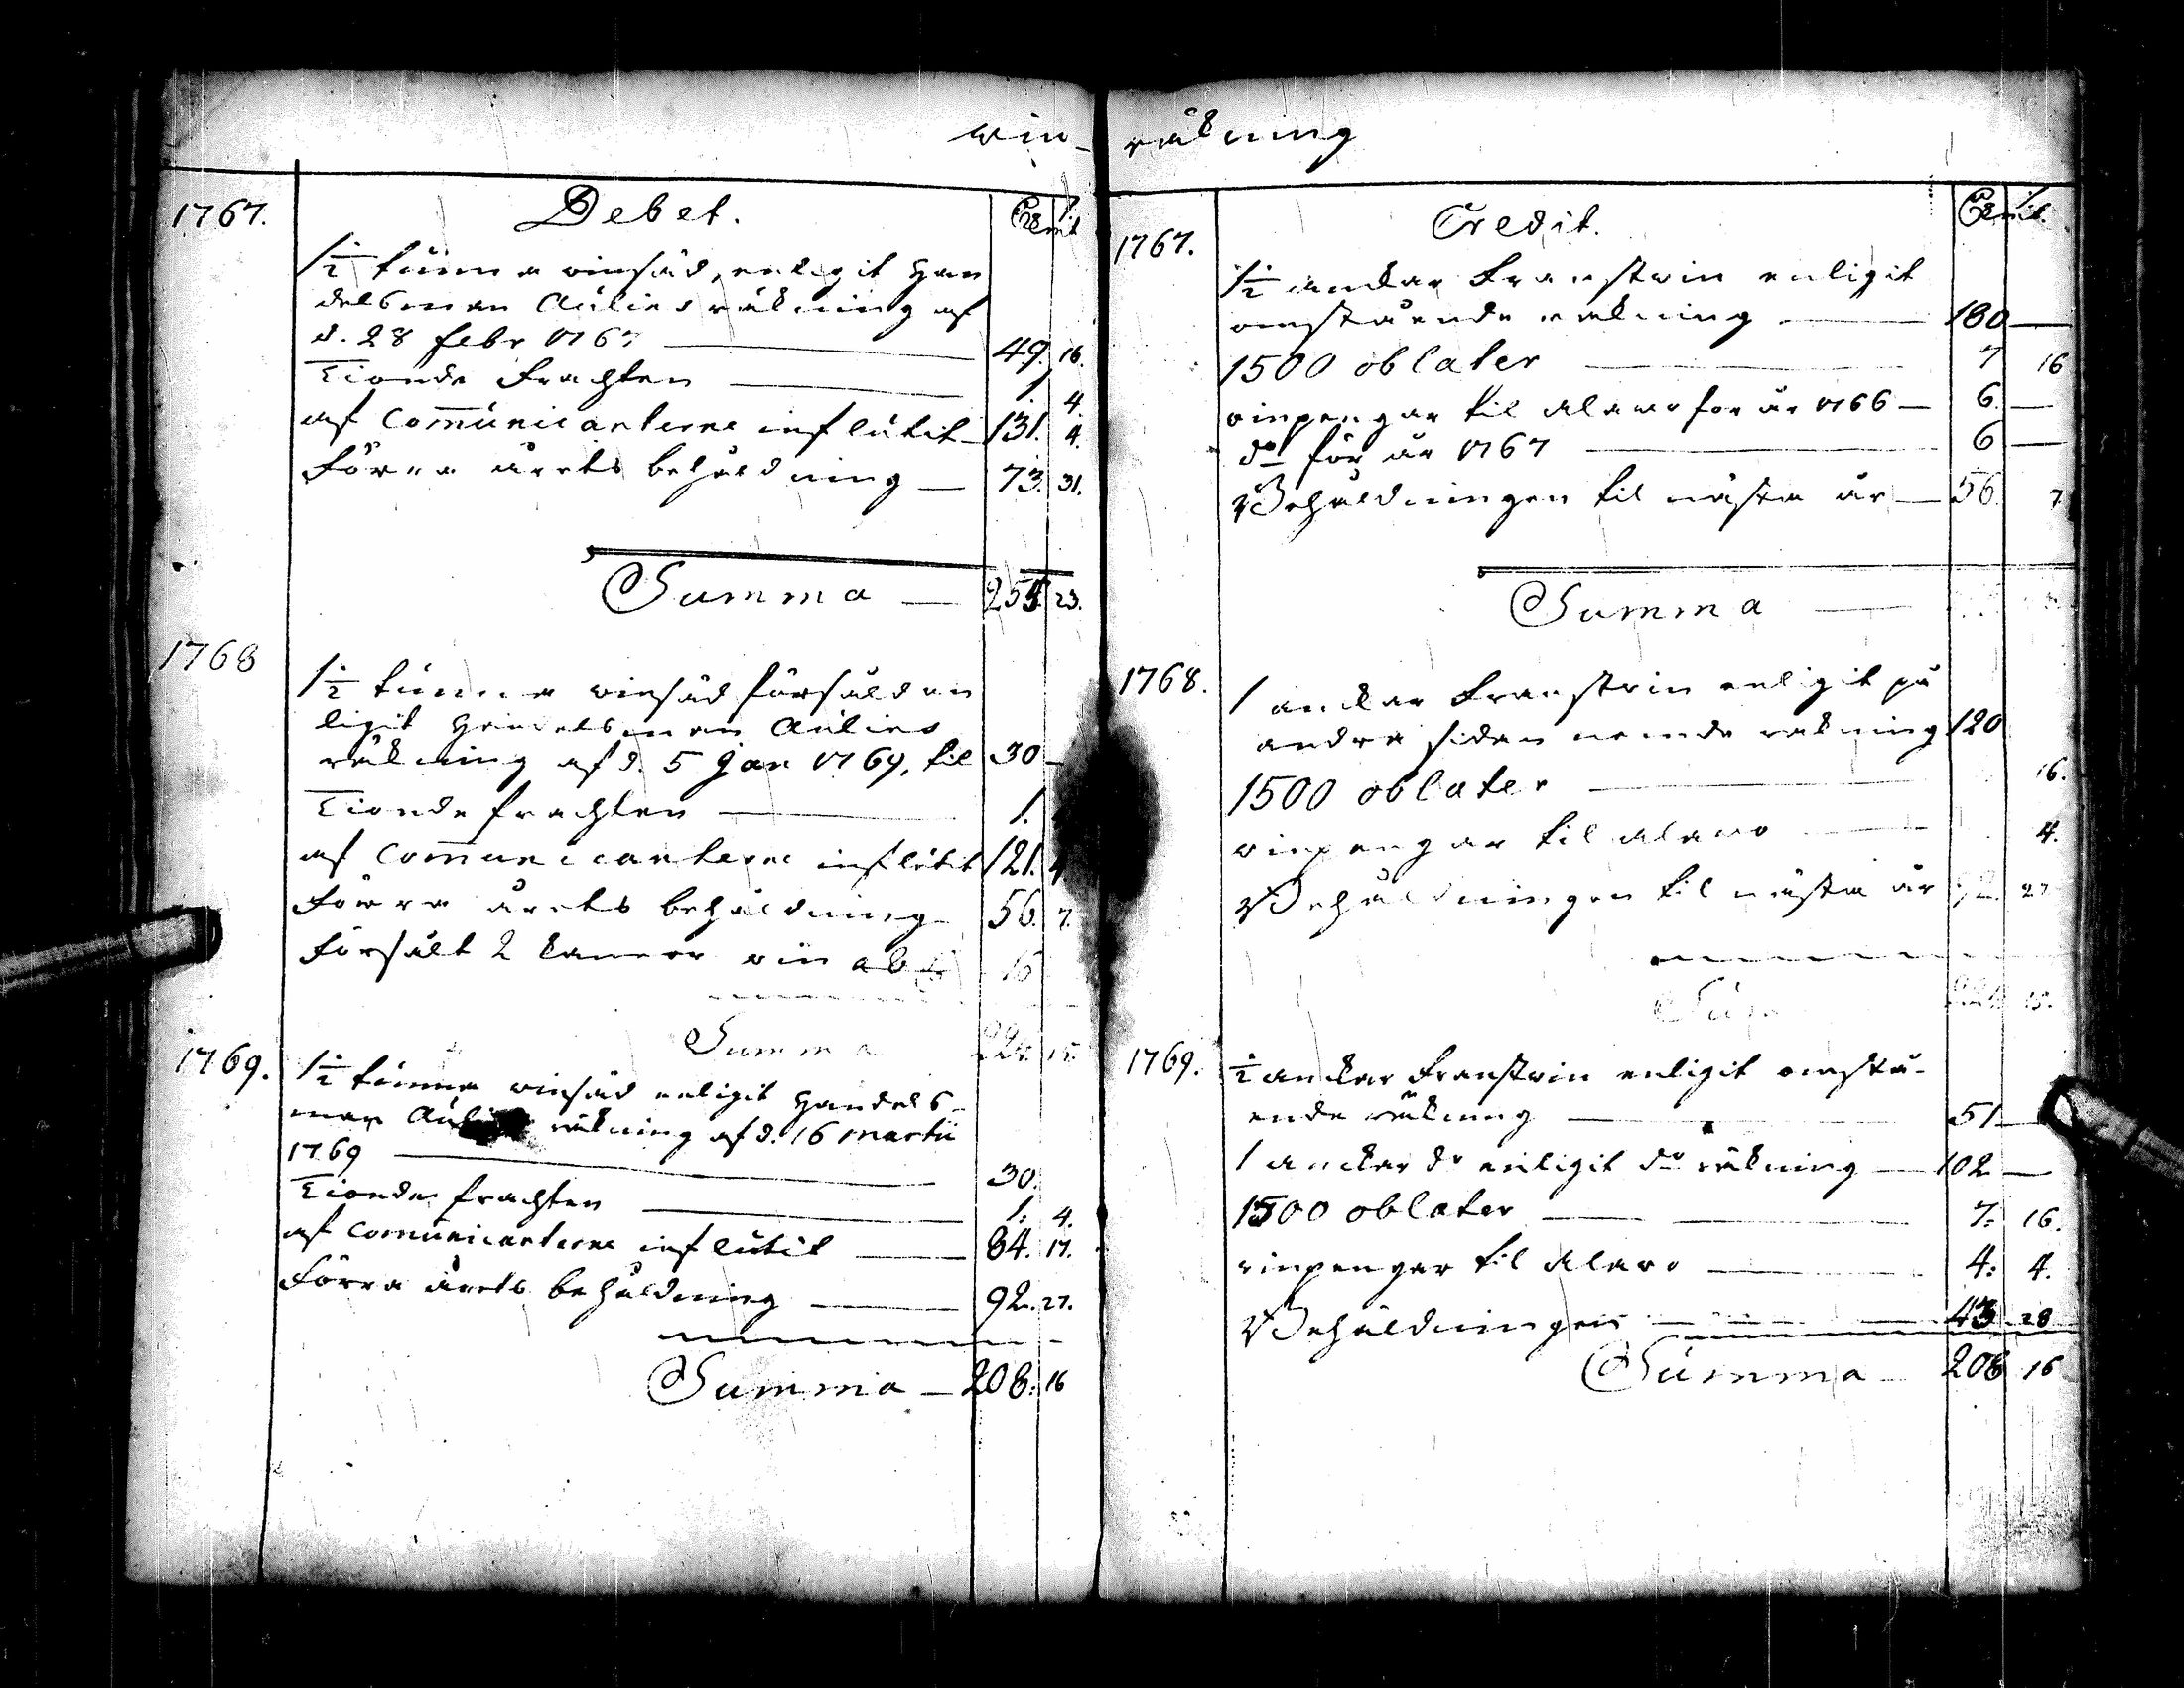 win- räkning
Debet.
1767.
1½ tunna winsäd, enligit Han
delsman Aulins räkning af
d. 28 febr 1767 — 49. 16.
Tionde frachten — 1. 4.
af Communicanterne influtit — 131. 4.
Förra årets behåldning — 73. 31.
Summa — 255. 23.
1768
1½ tunna winsäd försåld en
ligit Handelsman Aulins
räkning af d. 5 Jan 1769, til 30 —
Tionde frachten — 1.
af Communicanterne influtit 121. 4
Förra årets behåldning 56. 7.
Försålt 2 kannor win 16
Summa 224. 15.
1769.
1½ tunna winsäd enligit Handels-
man räkning af d. 16 Martii
1769 — 30.
Tionde frachten — 1. 4.
af Communicanterne influtit — 84. 17.
Förra årets behåldning — 92. 27.
Summa — 208. 16
Credit.
1767.
1½ anckar Franstwin enligit
omstående räkning — 180 —
1500 oblater — 7 16
winpengar til Alavo för år 1766 — 6 —
do för år 1767 — 6 —
Behåldningen til nästa år — 56. 7
Summa —
1768.
1 anckar Franstwin enligit på
andra sidan nemde räkning 120
1500 oblater — 16.
winpengar til Alavo — 4.
Behåldningen til nästa år 92. 27
15.
1769.
½ anckar Franstwin enligit omstå-
ende räkning — 51 —
1 anckar do enligit do räkning — 102 —
1500 oblater — 7. 16.
winpengar til Alavo — 4. 4.
Behåldningen — 43 28
Summa — 208 16